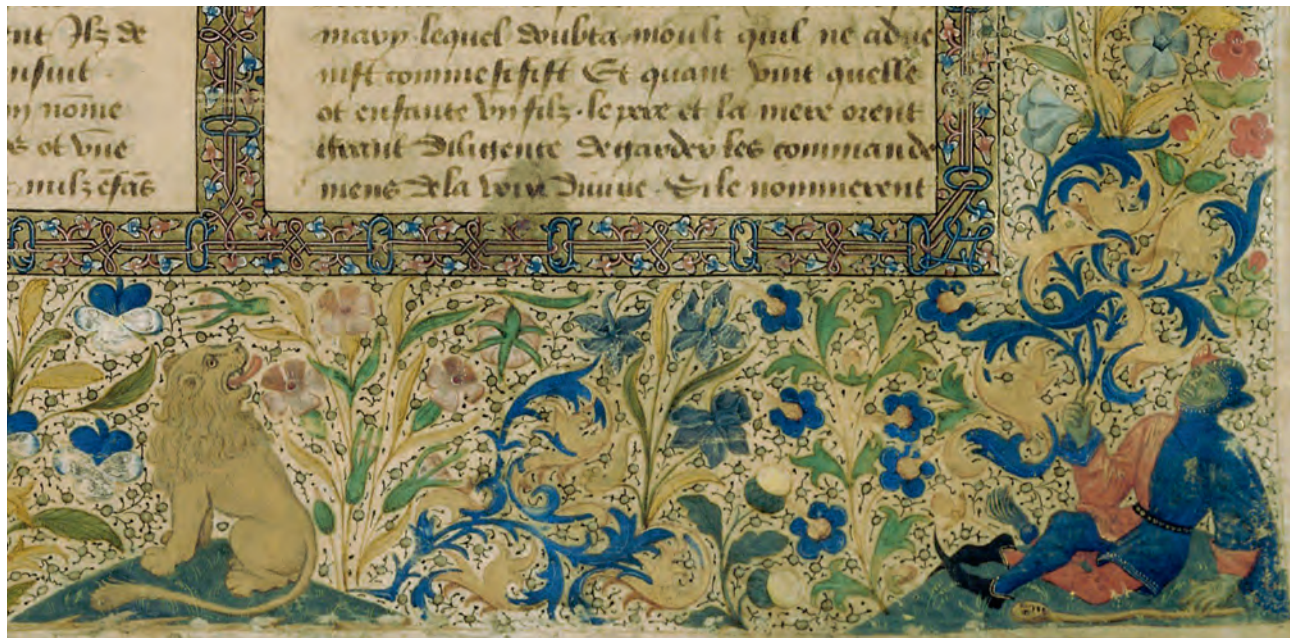 Ilz de
nõme
ot vne
mary lequel doubta moult quil ne adue
nist comme si fist Et quant vint quelle
ot enfante vn filz. le pere et la mere orent
grant diligence de garder les commande
mens de la voix diuine. Si le nommerent